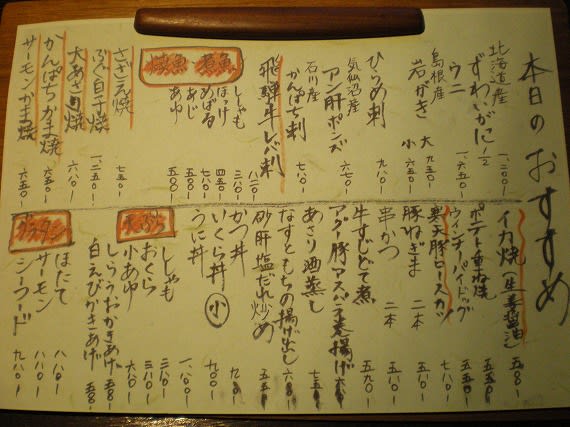 本日のおすすめ
北海道産
ずわいがに 1/2 一、二〇〇-
ウニ 一、六五〇-
島根産
岩がき 大 九五〇-
小 六五〇-
ひらめ刺 九八〇-
気仙沼産
アン肝ポンズ 六七〇-
石川産
かんぱち刺 七八〇-
飛騨牛レバ刺 八二〇-
焼魚 煮魚
ししゃも 三八〇-
ほっけ 四五〇-
めばる 七八〇-
あじ
あゆ 五八〇-
さざえ焼 七五〇-
ふぐ白子焼 一、二五〇-
大あさり焼 六八〇-
かんぱちかま焼 六五〇-
サーモンかま焼 六五〇-
イカ焼(生姜醤油) 五八〇-
ポテト重ね焼 五五〇-
ウィンナーパイドッグ 五五〇-
豚ヒースカツ 七八〇-
豚ねぎま 二本 五八〇-
串かつ 二本
牛すじどて煮 五九〇-
アグー豚アスパラ巻揚げ
あさり酒蒸し 七五〇-
なすともちの揚げ出し 六八〇-
砂肝塩だれ炒め 五五〇-
かつ丼
いくら丼 小 九〇〇-
うに丼 一、一〇〇-
天ぷら
ししゃも 三八〇-
おくら 三八〇-
小あゆ 六八〇-
しらうおかきあげ 五八〇-
白えびかきあげ 五八〇-
グラタン
ほたて 八八〇-
サーモン 八八〇-
シーフード 九八〇-